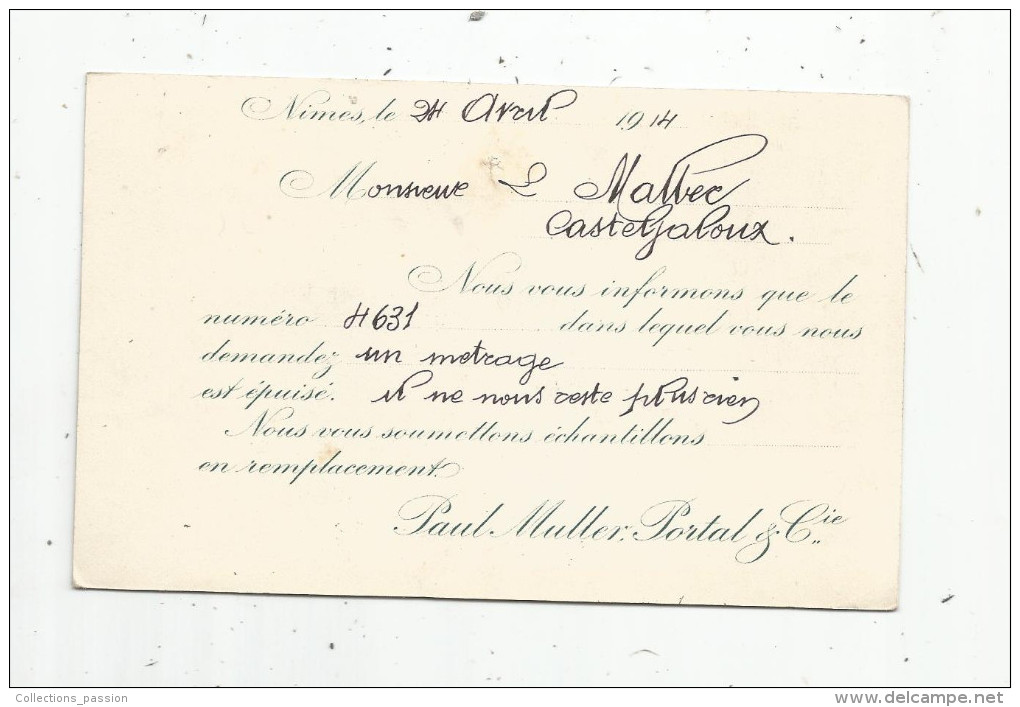 Nimes, le 24 Avril 1914
Monsieur L Malbec
Casteljaloux.
Nous vous informons que le
numéro 4631 dans lequel vous nous
demandez un metrage
est épuisé. il ne nous reste plus rien
Nous vous soumettons échantillons
en remplacement.
Paul Muller, Portal & Cie
Collections_passion
www.delcampe.net